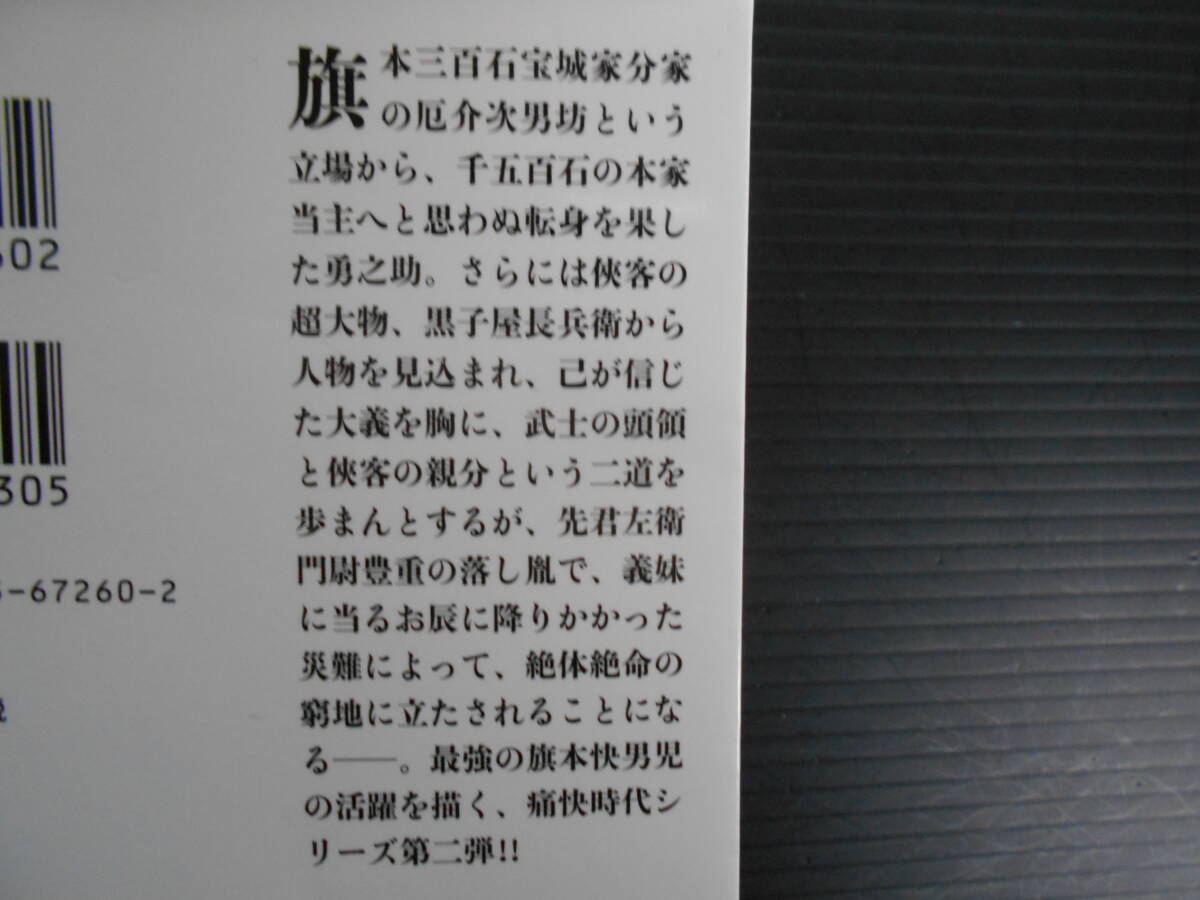 旗本三百石宝城家分家
の厄介次男坊という
立場から、千五百石の本家
当主へと思わぬ転身を果し
た勇之助。さらには俠客の
超大物、黒子屋長兵衛から
人物を見込まれ、己が信じ
た大義を胸に、武士の頭領
と俠客の親分という二道を
歩まんとするが、先君左衛
門尉豊重の落し胤で、義妹
に当るお辰に降りかかった
災難によって、絶体絶命の
窮地に立たされることにな
る――。最強の旗本快男児
の活躍を描く、痛快時代シ
リーズ第二弾!!
602
305
-67260-2